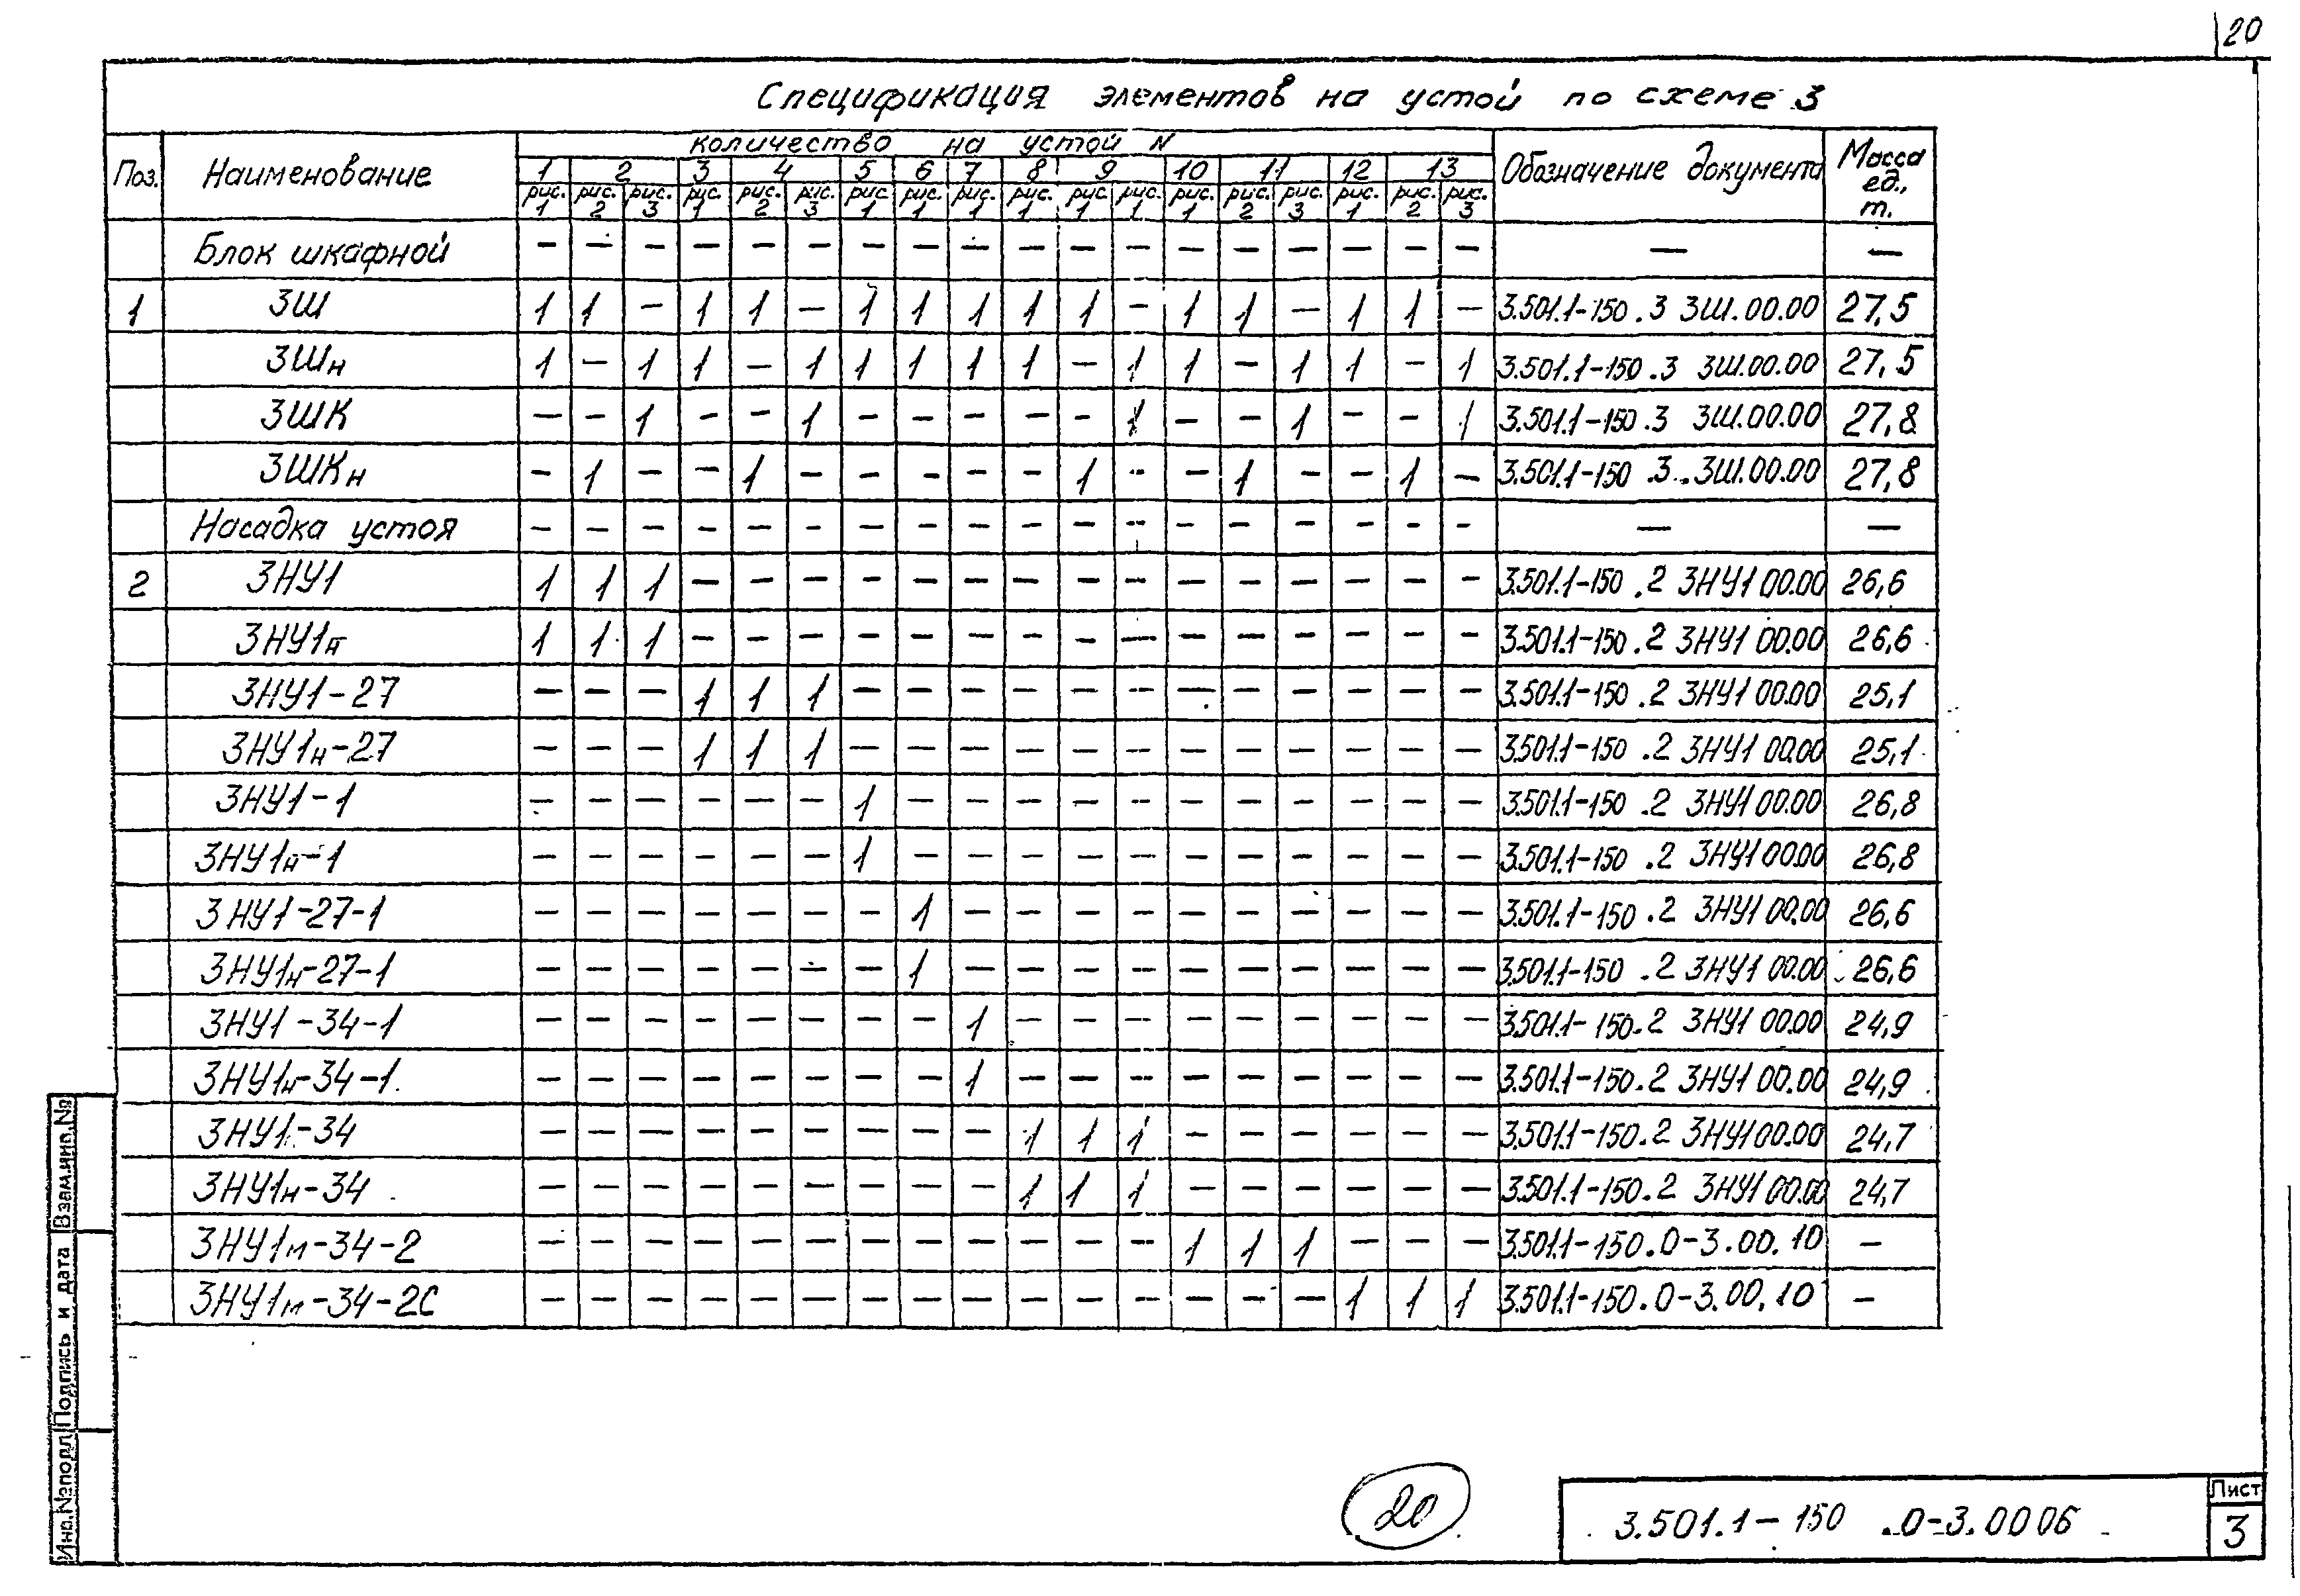 20
Спецификация элементов на устой по схеме 3
Поз. Наименование количество на устой N Обозначение документа Масса ед., т.
1 2 3 4 5 6 7 8 9 10 11 12 13
рис. 1 рис. 2 рис. 3 рис. 1 рис. 2 рис. 3 рис. 1 рис. 1 рис. 1 рис. 1 рис. 1 рис. 1 рис. 1 рис. 2 рис. 3 рис. 1 рис. 2 рис. 3
Блок шкафной — — — — — — — — — — — — — — — — — — — —
1 3Ш 1 1 — 1 1 — 1 1 1 1 1 — 1 1 — 1 1 — 3.501.1-150.3 3Ш.00.00 27,5
3Шн 1 — 1 1 — 1 1 1 1 1 — 1 1 — 1 1 — 1 3.501.1-150.3 3Ш.00.00 27,5
3ШК — — 1 — — 1 — — — — — 1 — — 1 — — 1 3.501.1-150.3 3Ш.00.00 27,8
3ШКн — 1 — — 1 — — — — — 1 — — 1 — — 1 — 3.501.1-150.3 3Ш.00.00 27,8
Насадка устоя — — — — — — — — — — — — — — — — — — — —
2 3НУ1 1 1 1 — — — — — — — — — — — — — — — 3.501.1-150.2 3НУ1 00.00 26,6
3НУ1н 1 1 1 — — — — — — — — — — — — — — — 3.501.1-150.2 3НУ1 00.00 26,6
3НУ1-27 — — — 1 1 1 — — — — — — — — — — — — 3.501.1-150.2 3НУ1 00.00 25,1
3НУ1н-27 — — — 1 1 1 — — — — — — — — — — — — 3.501.1-150.2 3НУ1 00.00 25,1
3НУ1-1 — — — — — — 1 — — — — — — — — — — — 3.501.1-150.2 3НУ1 00.00 26,8
3НУ1н-1 — — — — — — 1 — — — — — — — — — — — 3.501.1-150.2 3НУ1 00.00 26,8
3НУ1-27-1 — — — — — — — 1 — — — — — — — — — — 3.501.1-150.2 3НУ1 00.00 26,6
3НУ1н-27-1 — — — — — — — 1 — — — — — — — — — — 3.501.1-150.2 3НУ1 00.00 26,6
3НУ1-34-1 — — — — — — — — 1 — — — — — — — — — 3.501.1-150.2 3НУ1 00.00 24,9
3НУ1н-34-1 — — — — — — — — 1 — — — — — — — — — 3.501.1-150.2 3НУ1 00.00 24,9
3НУ1-34 — — — — — — — — — 1 1 1 — — — — — — 3.501.1-150.2 3НУ1 00.00 24,7
3НУ1н-34 — — — — — — — — — 1 1 1 — — — — — — 3.501.1-150.2 3НУ1 00.00 24,7
3НУ1м-34-2 — — — — — — — — — — — — 1 1 1 — — — 3.501.1-150.0-3.00.10 —
3НУ1м-34-2С — — — — — — — — — — — — — — — 1 1 1 3.501.1-150.0-3.00.10 —
Инв.№подл. Подпись и дата Взам.инв.№
20
3.501.1-150 .0-3.0006
Лист
3